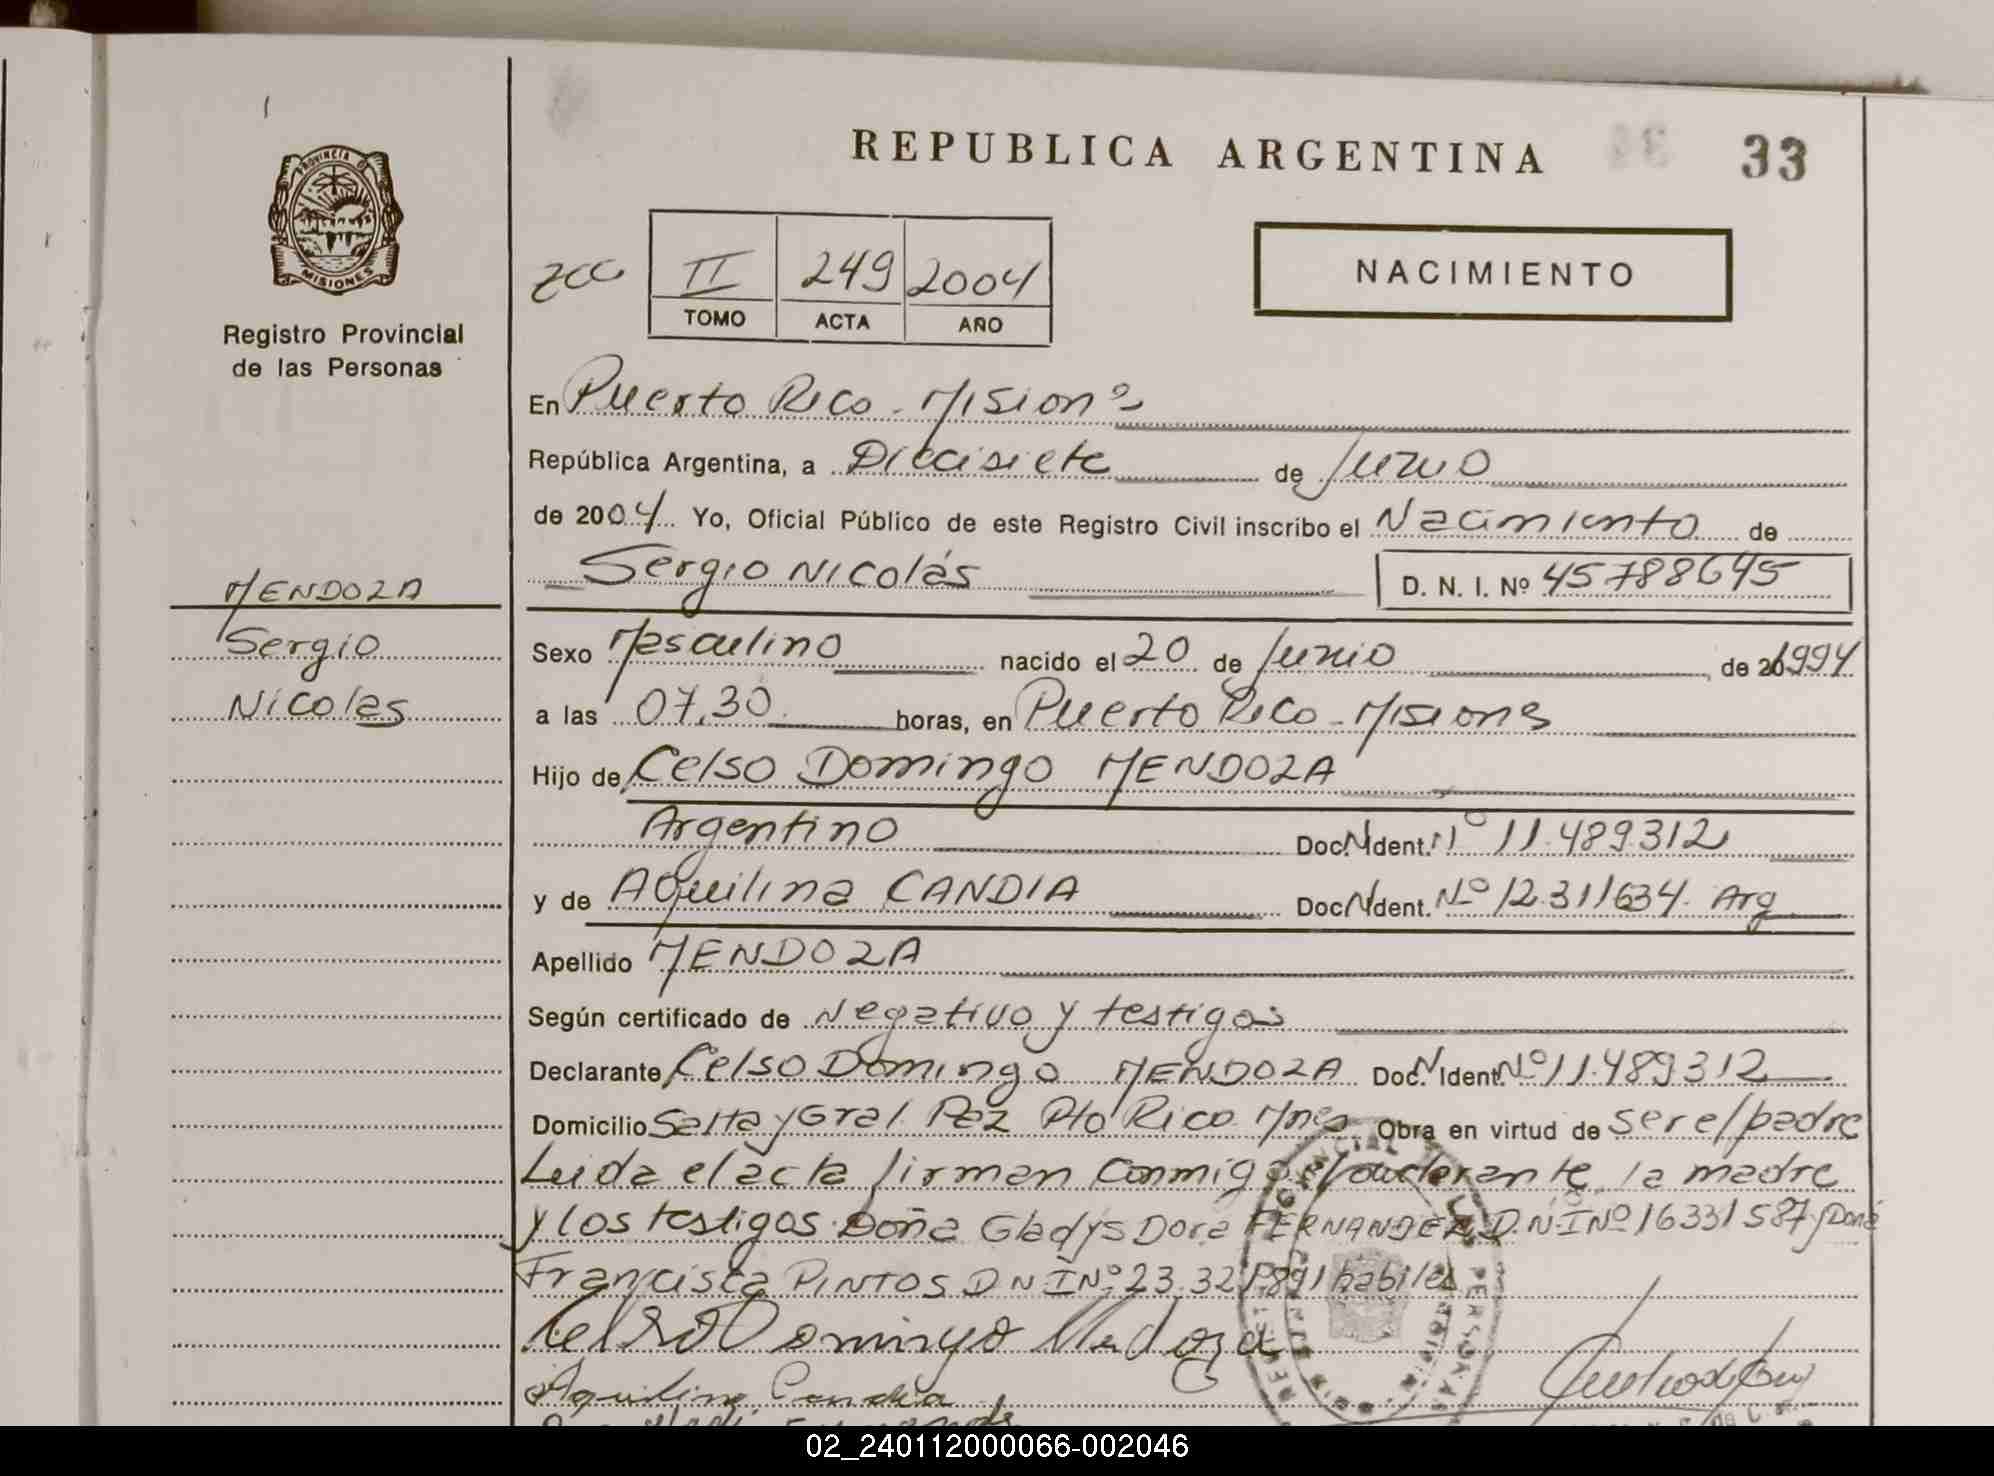 REPUBLICA ARGENTINA
33
PROVINCIA DE
MISIONES
Registro Provincial
de las Personas
II 249 2004
TOMO ACTA AÑO
NACIMIENTO
En Puerto Rico - Misiones
República Argentina, a Diecisiete de Junio
de 2004 Yo, Oficial Público de este Registro Civil inscribo el Nacimiento de
Sergio Nicolás D. N. I. Nº 45788645
MENDOZA
Sergio
Nicolas
Sexo Masculino nacido el 20 de Junio de 1994
a las 07,30 horas, en Puerto Rico - Misiones
Hijo de Celso Domingo MENDOZA
Argentino Doc. N Ident. Nº 11.489.312
y de Aquilina CANDIA Doc. N Ident. Nº 12.311634. Arg
Apellido MENDOZA
Según certificado de Negativo y testigos
Declarante Celso Domingo MENDOZA Doc. N Ident. Nº 11.489312
Domicilio Salta y Gral Paz Pto Rico Mnes Obra en virtud de ser el padre
Leida el acta firman conmigo el declarante, la madre
y los testigos Doña Gladys Dora FERNANDEZ D.N.I Nº 16331587 y Doña
Francisca PINTOS D N I Nº 23.32 891 habiles
Celso Domingo Mendoza
Aquilina Candia
02_240112000066-002046